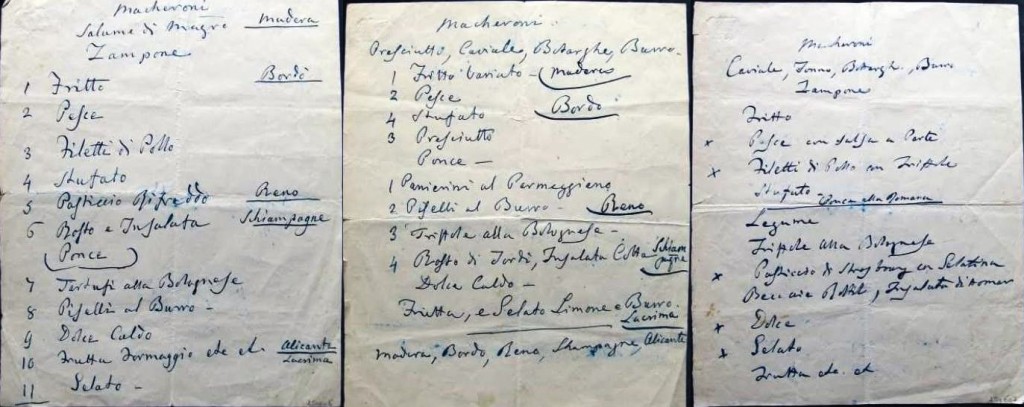 Macheroni
Salume di Magro Madera
Zampone
Bordò
1 Fritto
2 Pesce
3 Filetti di Pollo
4 Stufato
5 Pasticcio Rifreddo Reno
6 Rosto e Insalata Schiampagne
Ponce
7 Tartufi alla Bolognese
8 Piselli al Burro -
9 Dolce Caldo
10 Frutta Formaggio etc etc. Alicante
Lacrima
11 Gelato -
Macheroni.
Presciutto, Caviale, Botarghe, Burro.
1 Fritto Variato - Madera
2 Pesce Bordò
4 Stufato
3 Presciutto
Ponce -
1 Panierini al Parmeggieno
2 Piselli al Burro - Reno
3 Trippole alla Bolognese -
4 Rosto di Tordi, Insalata Cotta Schiam
pagne
Dolce Caldo -
Frutta, e Gelato Limone e Burro.
Lacrima
Madera, Bordò, Reno, Shampagne, Alicante
Macheroni
Caviale, Tonno, Botargh., Burro
Zampone
Fritto
x Pesce con salsa a Parte
x Filetti di Pollo con Trippole
Stufato
Ponce alla Romana
Legume
Trippole alla Bolognese
x Pasticcio di Strasbourg con Gelatina
Beccacie Rostit, Insalata di
x Dolce
x Gelato
Frutta etc. et